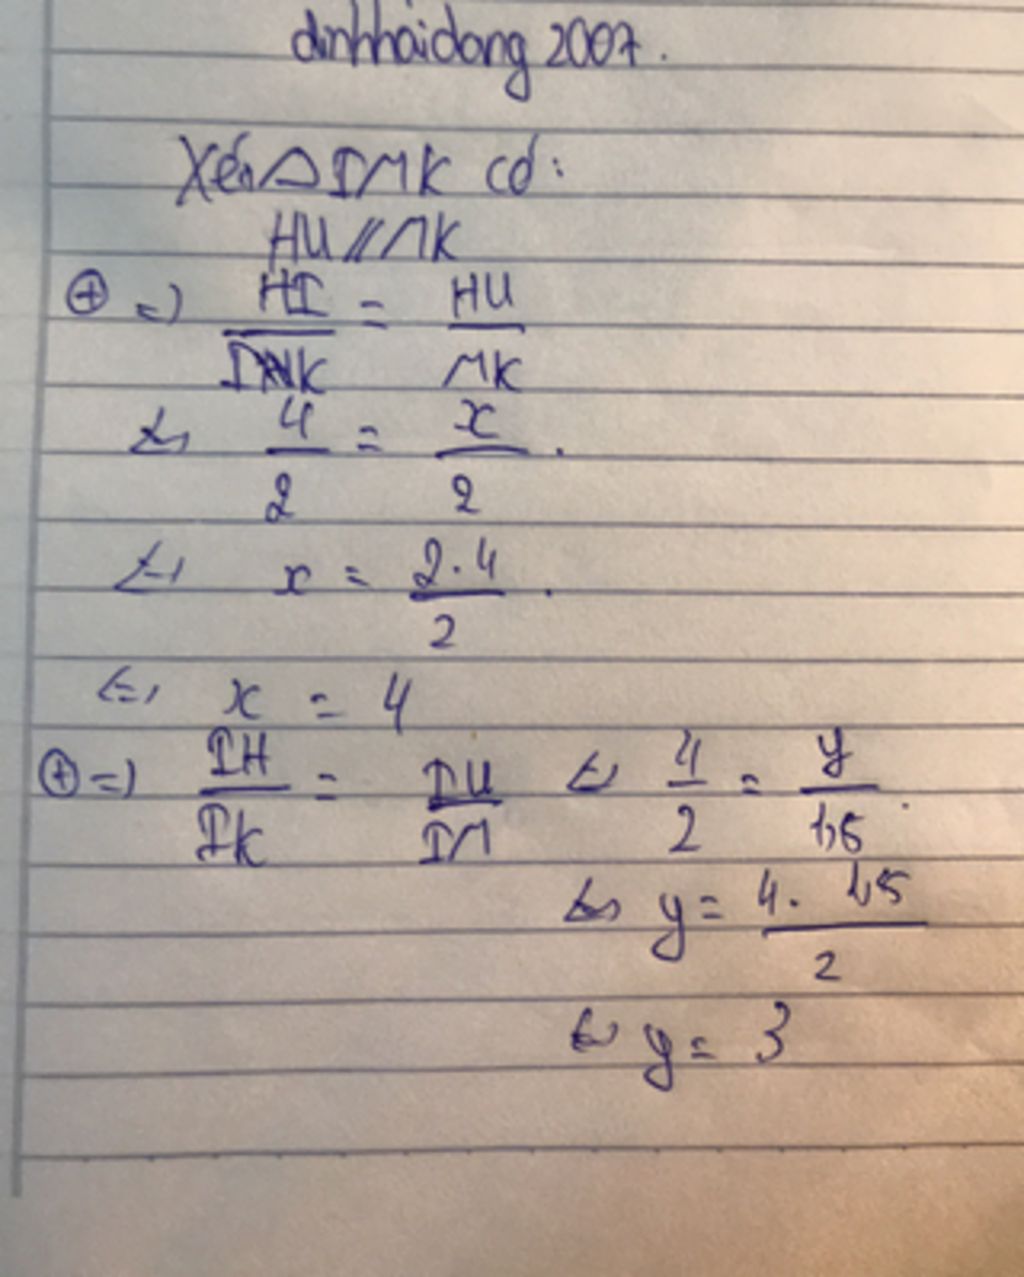 dinhhaidang 2007.
Xét △IMK có:
HU // MK
⊕ => HI/IK = HU/MK
<=> 4/2 = x/2.
<=> x = 2.4/2.
<=> x = 4
⊕ => IH/IK = IU/IM <=> 4/2 = y/1,5.
<=> y = 4. 1,5/2
<=> y = 3